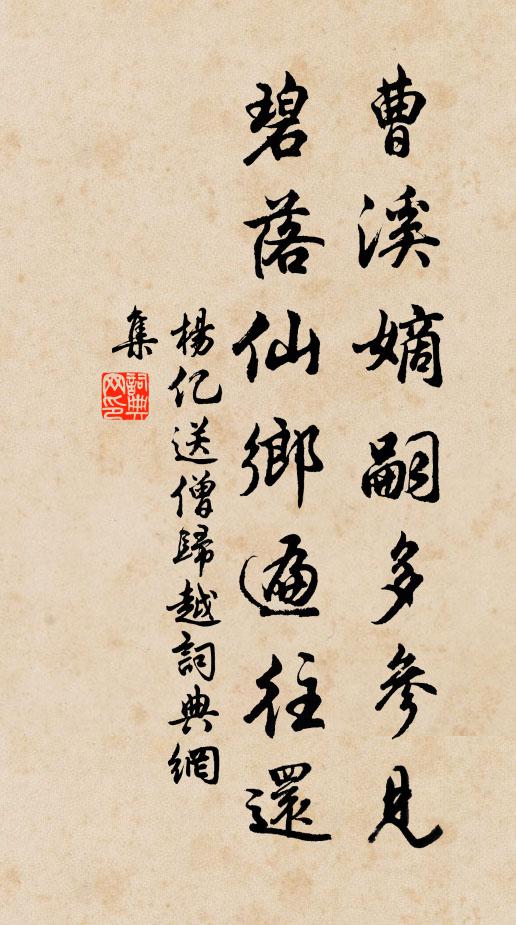 曹溪嫡嗣多參見
碧落仙鄉遍往還
楊億送僧歸越詞典網
集
詞典網印